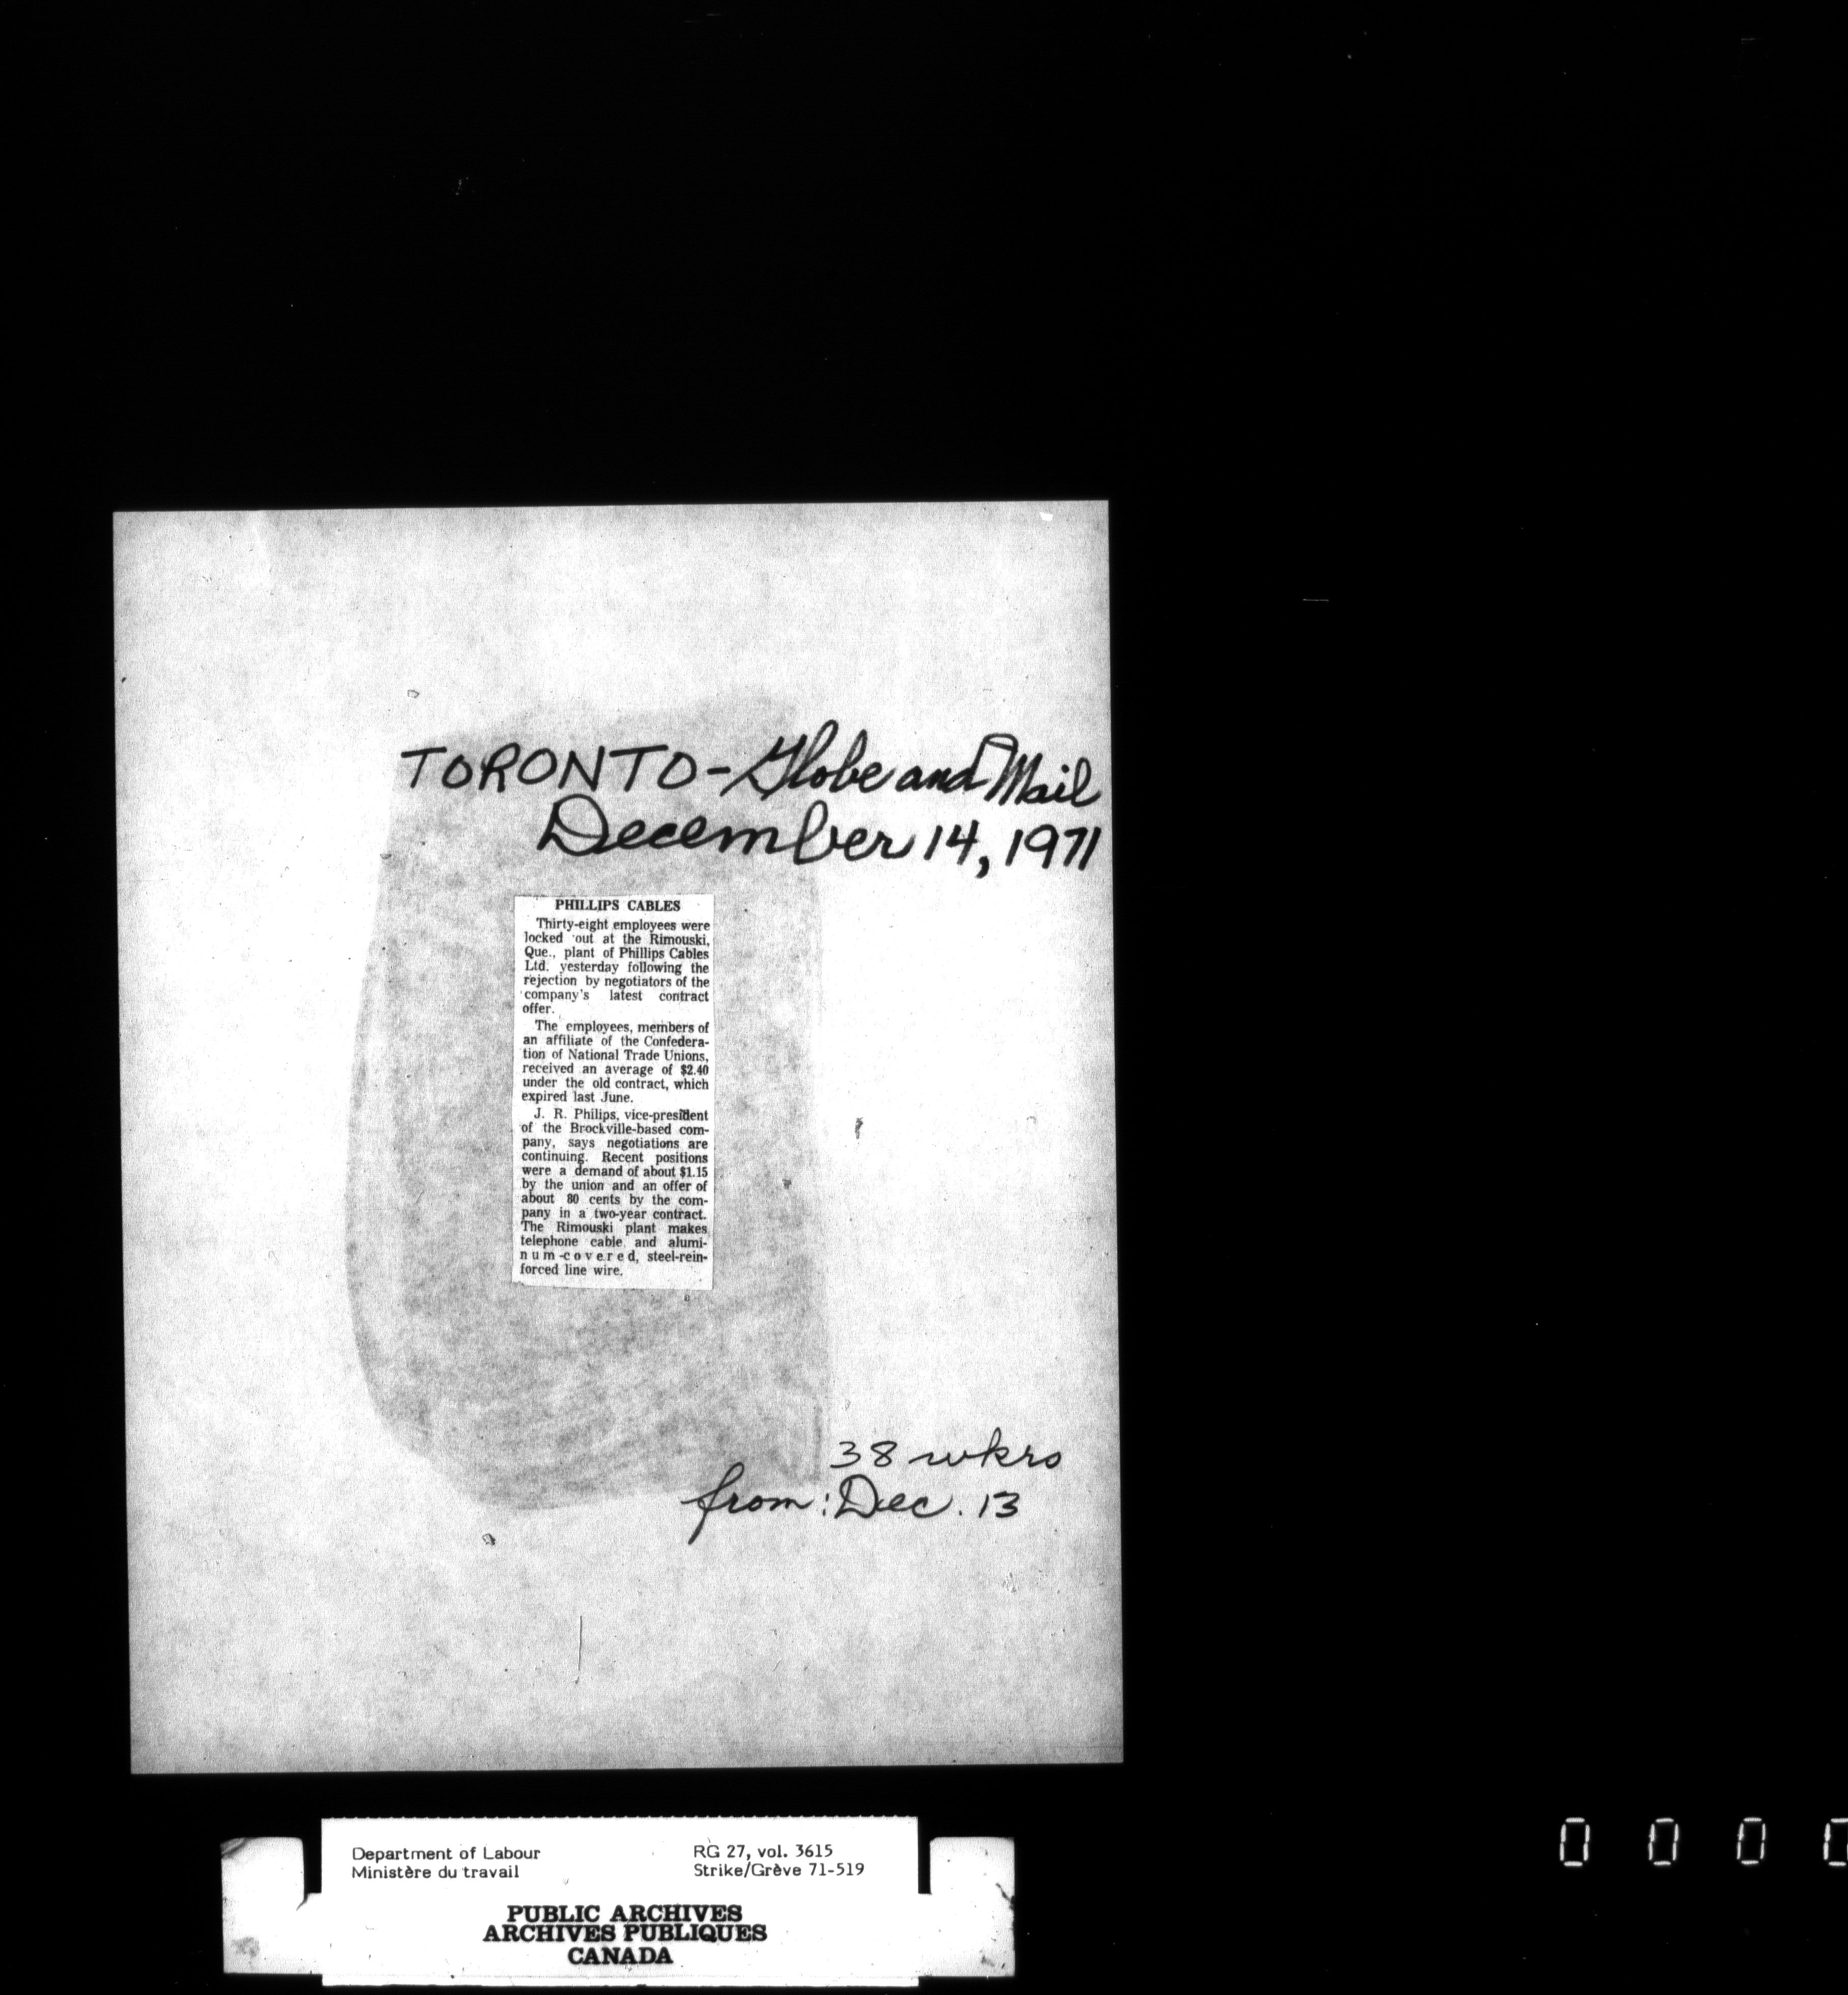 TORONTO-Globe and Mail
December 14, 1971
PHILLIPS CABLES
Thirty-eight employees were
locked out at the Rimouski,
Que., plant of Phillips Cables
Ltd. yesterday following the
rejection by negotiators of the
company's latest contract
offer.
The employees, members of
an affiliate of the Confedera-
tion of National Trade Unions,
received an average of $2.40
under the old contract, which
expired last June.
J. R. Philips, vice-president
of the Brockville-based com-
pany, says negotiations are
continuing. Recent positions
were a demand of about $1.15
by the union and an offer of
about 80 cents by the com-
pany in a two-year contract.
The Rimouski plant makes
telephone cable and alumi-
num-covered, steel-rein-
forced line wire.
38 wkrs
from: Dec. 13
Department of Labour
Ministère du travail
RG 27, vol. 3615
Strike/Grève 71-519
PUBLIC ARCHIVES
ARCHIVES PUBLIQUES
CANADA
0 0 0